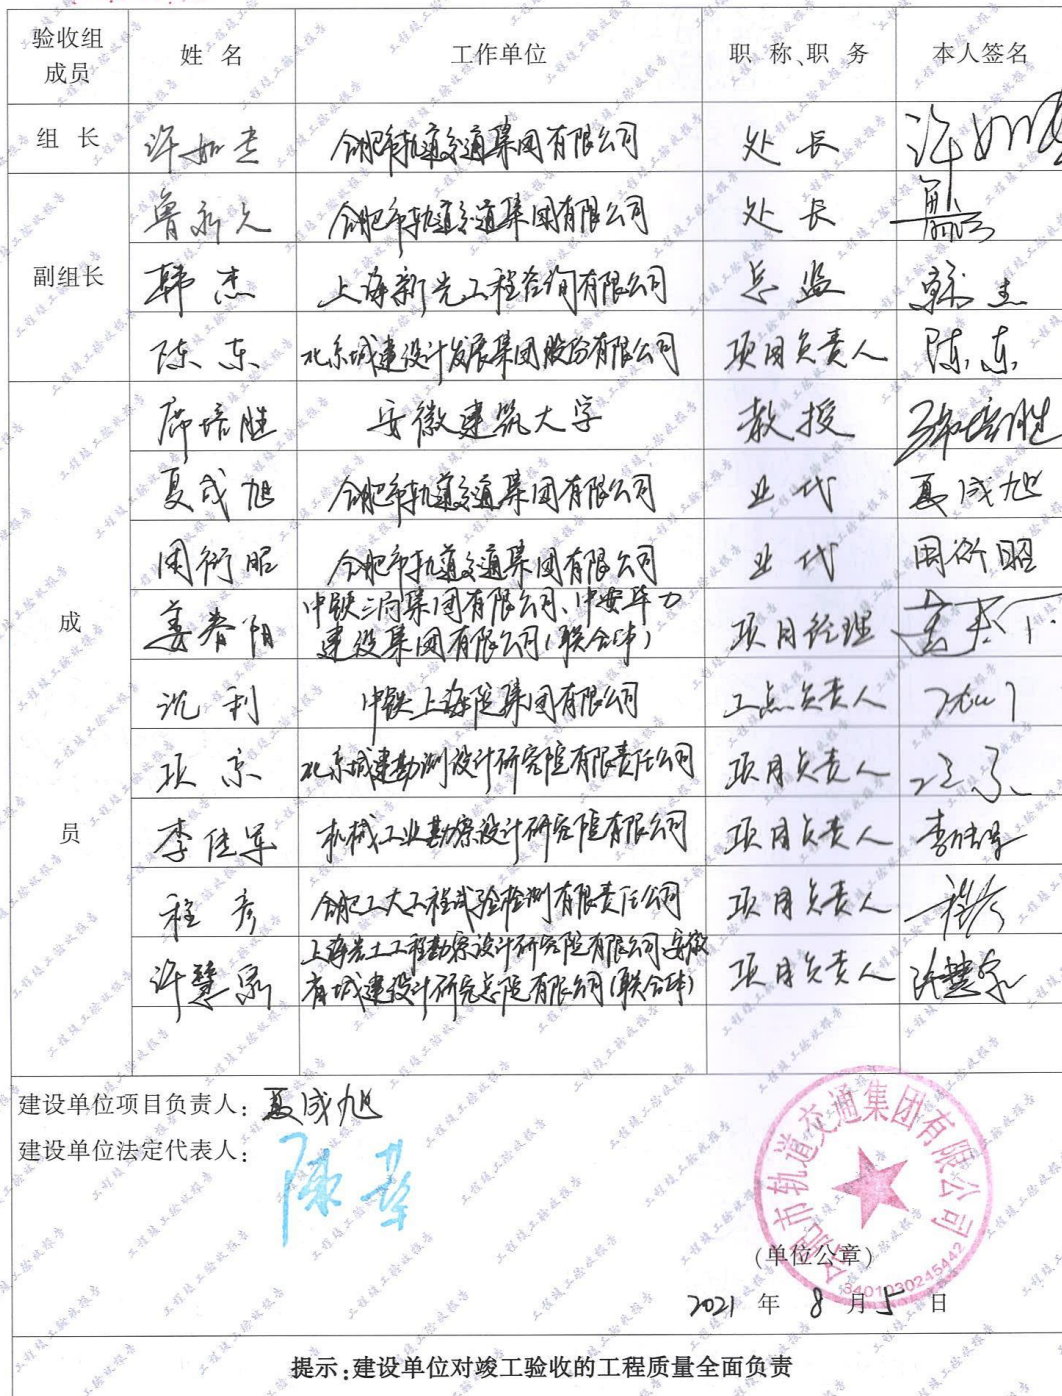 验收组成员 姓 名 工作单位 职 称、职 务 本人签名
组 长 许如 合肥市轨道交通集团有限公司 处 长
鲁新文 合肥市轨道交通集团有限公司 处 长
副组长 韩 杰 上海新光工程咨询有限公司 总 监 韩 杰
陈 东 北京城建设计发展集团股份有限公司 项目负责人 陈 东
培胜 安徽建筑大学 教 授 培胜
夏成旭 合肥市轨道交通集团有限公司 业 代 夏成旭
周衍昭 合肥市轨道交通集团有限公司 业 代 周衍昭
成 姜春阳 中铁二局集团有限公司、中安华力
建设集团有限公司(联合体) 项目经理
沈 利 中铁上海院集团有限公司 工点负责人
项 京 北京城建勘测设计研究院有限责任公司 项目负责人
员 李佳军 机械工业勘察设计研究院有限公司 项目负责人 李佳军
程 彦 合肥工大工程试验检测有限责任公司 项目负责人 程彦
许慧 上海岩土工程勘察设计研究院有限公司 安徽
省城建设计研究总院有限公司(联合体) 项目负责人 许慧
建设单位项目负责人：夏成旭
建设单位法定代表人：
合肥市轨道交通集团有限公司
(单位公章)
3401030245442
2021 年 8 月 5 日
提示:建设单位对竣工验收的工程质量全面负责
工程竣工验收报告